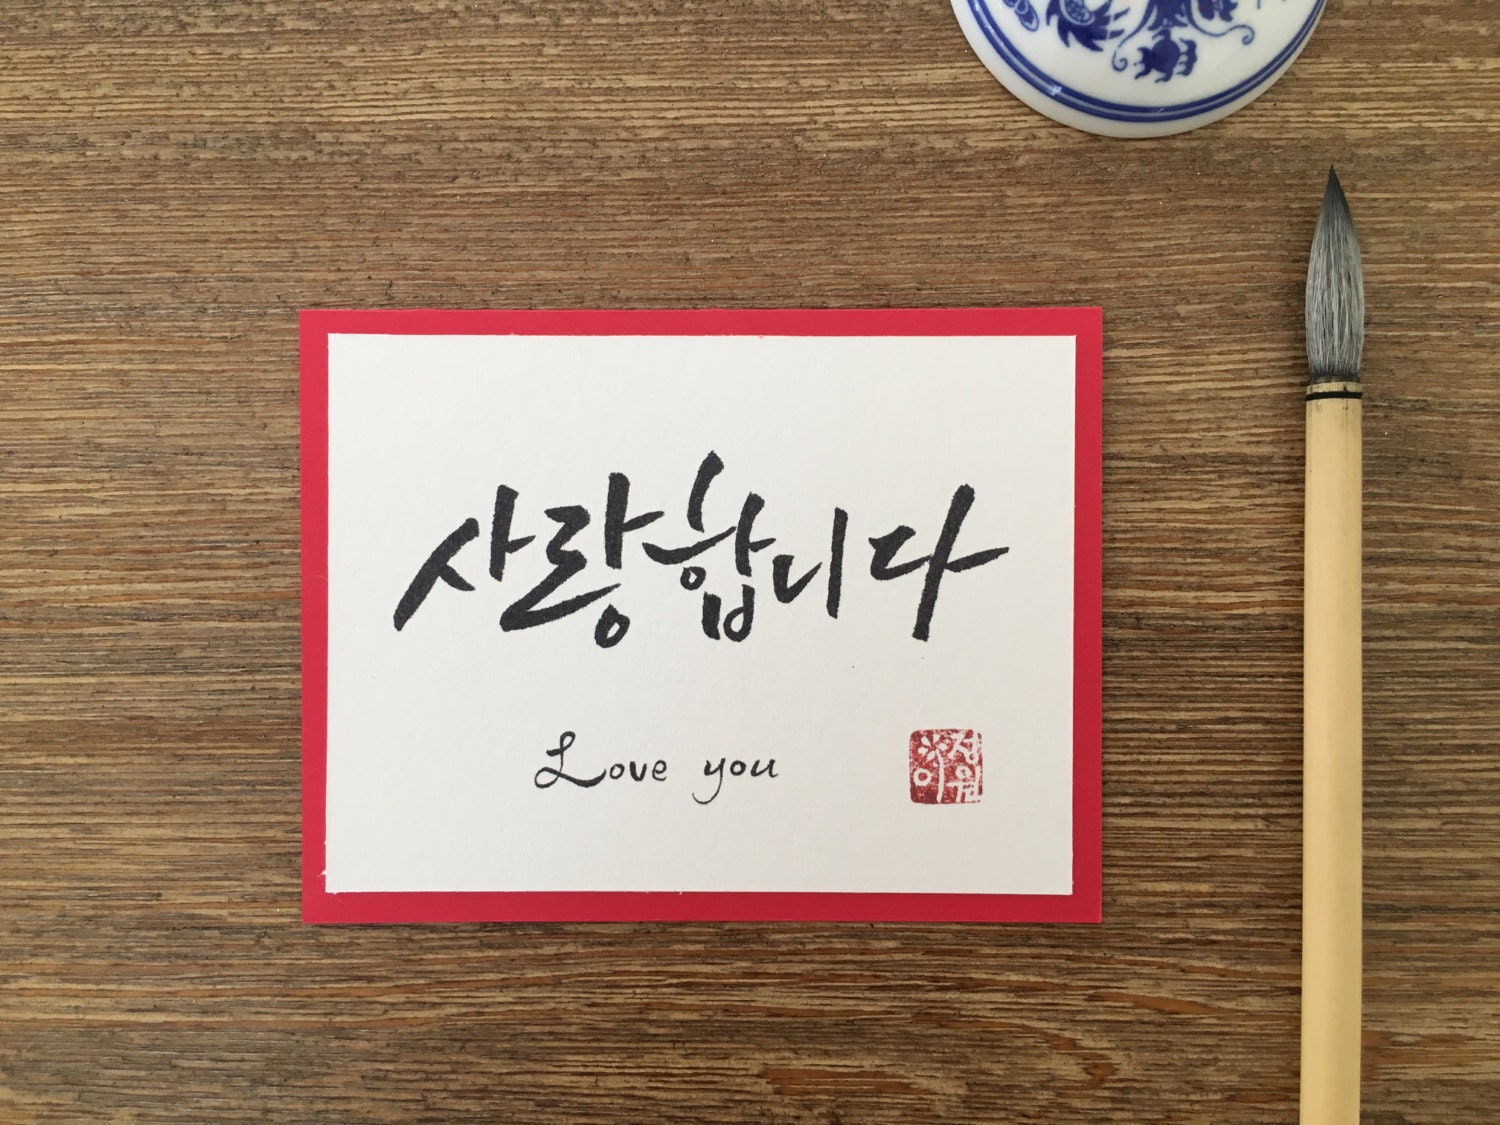 사랑합니다
Love you
이정원